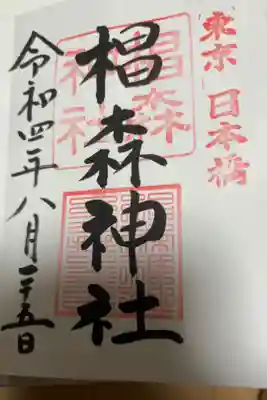 東京 日本橋
椙森神社
椙森
神社
令和四年八月二十五日